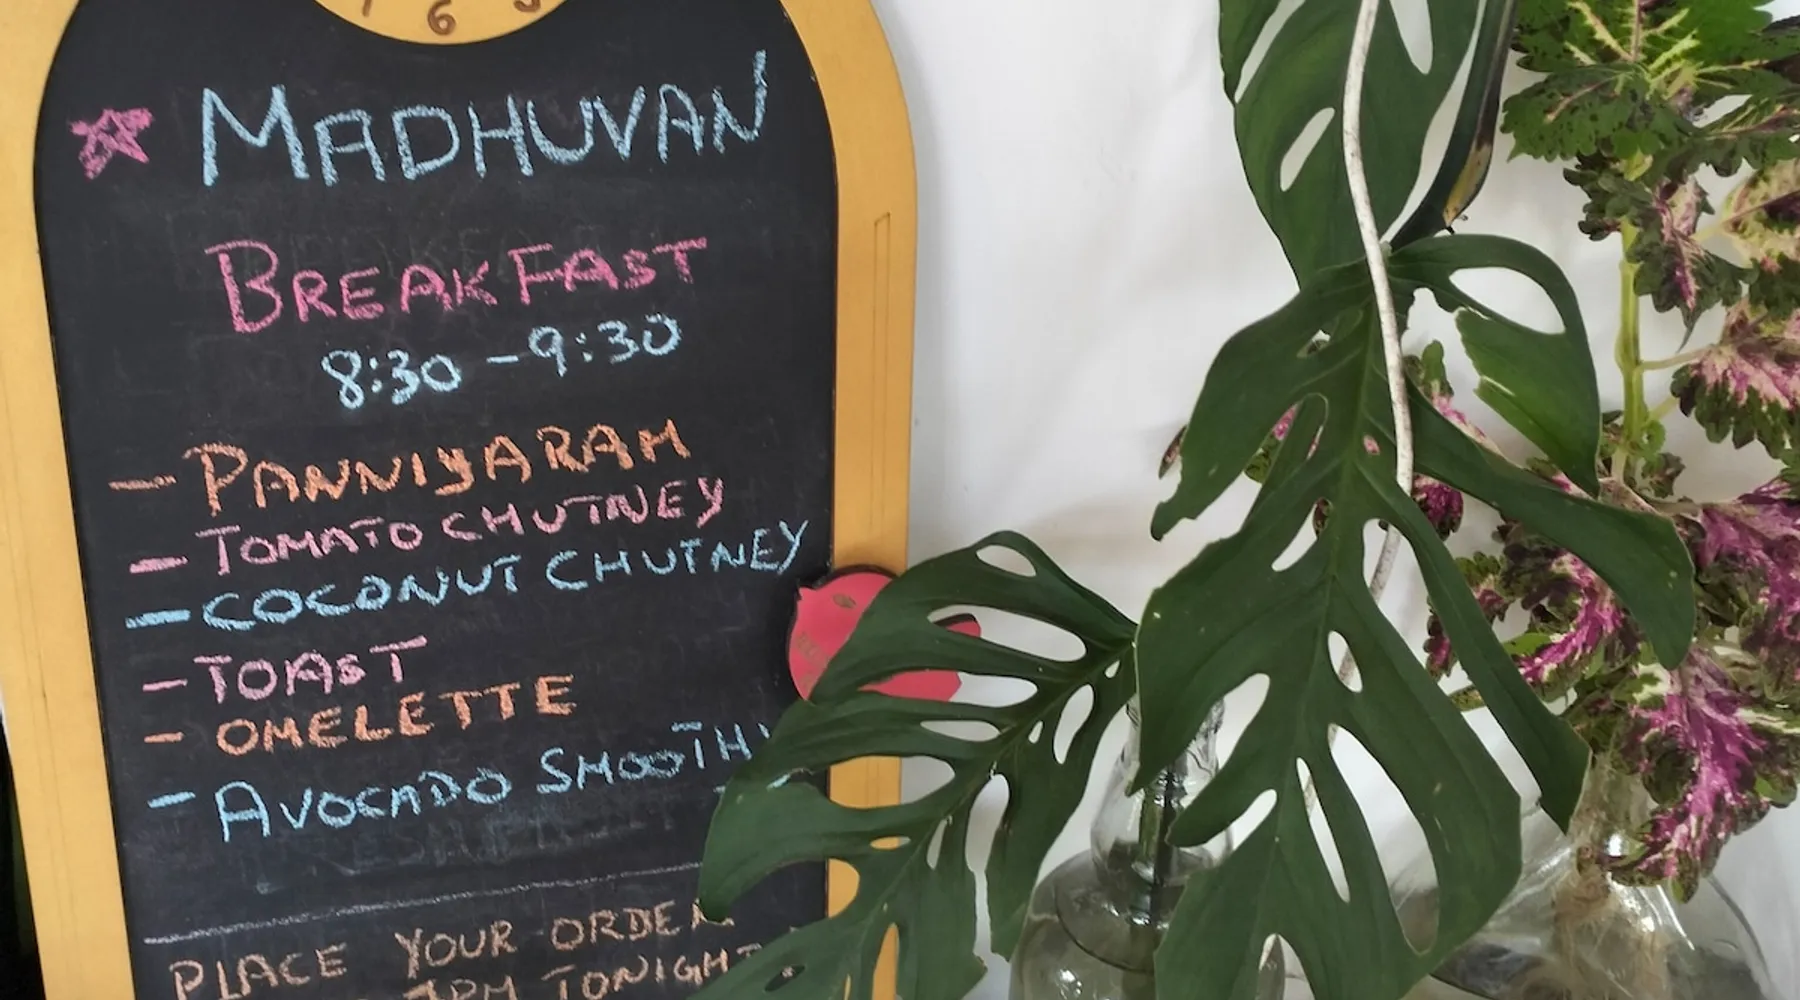 6
MADHUVAN
BREAKFAST
8:30 - 9:30
- PANNIYARAM
- TOMATO CHUTNEY
- COCONUT CHUTNEY
- TOAST
- OMELETTE
- AVOCADO SMOOTHY
PLACE YOUR ORDER
7PM TONIGHT